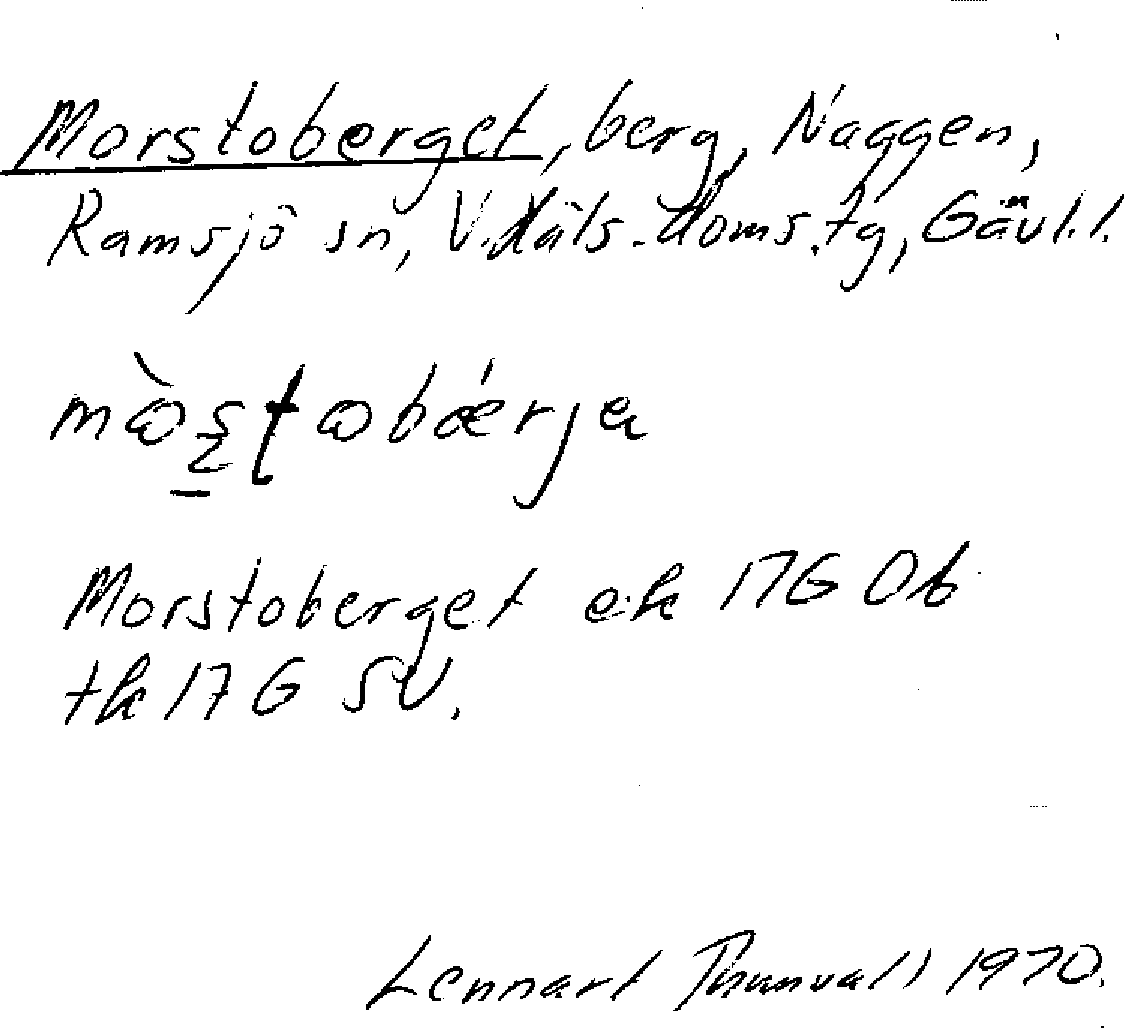 Morstoberget, berg, Naggen,
Ramsjö sn, V. Häls. doms. tg, Gävl. l.
mɷ̀ʂʈɷbǽrja
Morstoberget ek 17G 0b
tk 17 G SV.
Lennart Thunvall 1970.